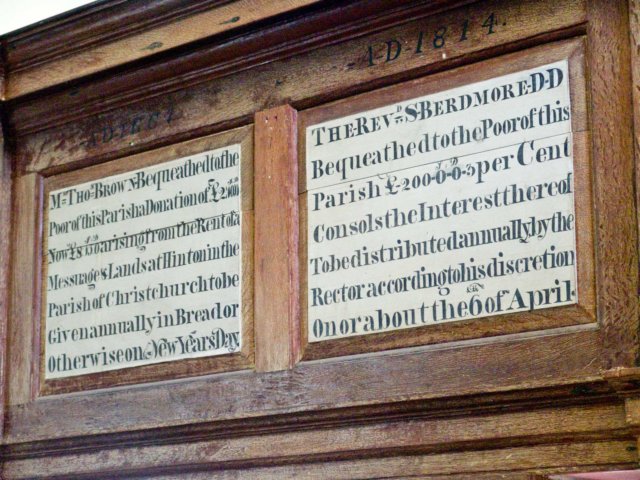 AD 1814.
Mr Thos Brown Bequeathed to the
Poor of this Parish a Donation of
arising from the Rent of a
Messuage & Lands at Hinton in the
Parish of Christchurch to be
Given annually in Bread or
Otherwise on New Years Day
THE REVD S. BERDMORE. D.D
Bequeathed to the Poor of this
Parish £200-0-0-3 per Cent
Consols the Interest thereof
To be distributed annually by the
Rector according to his discretion
On or about the 6th of April